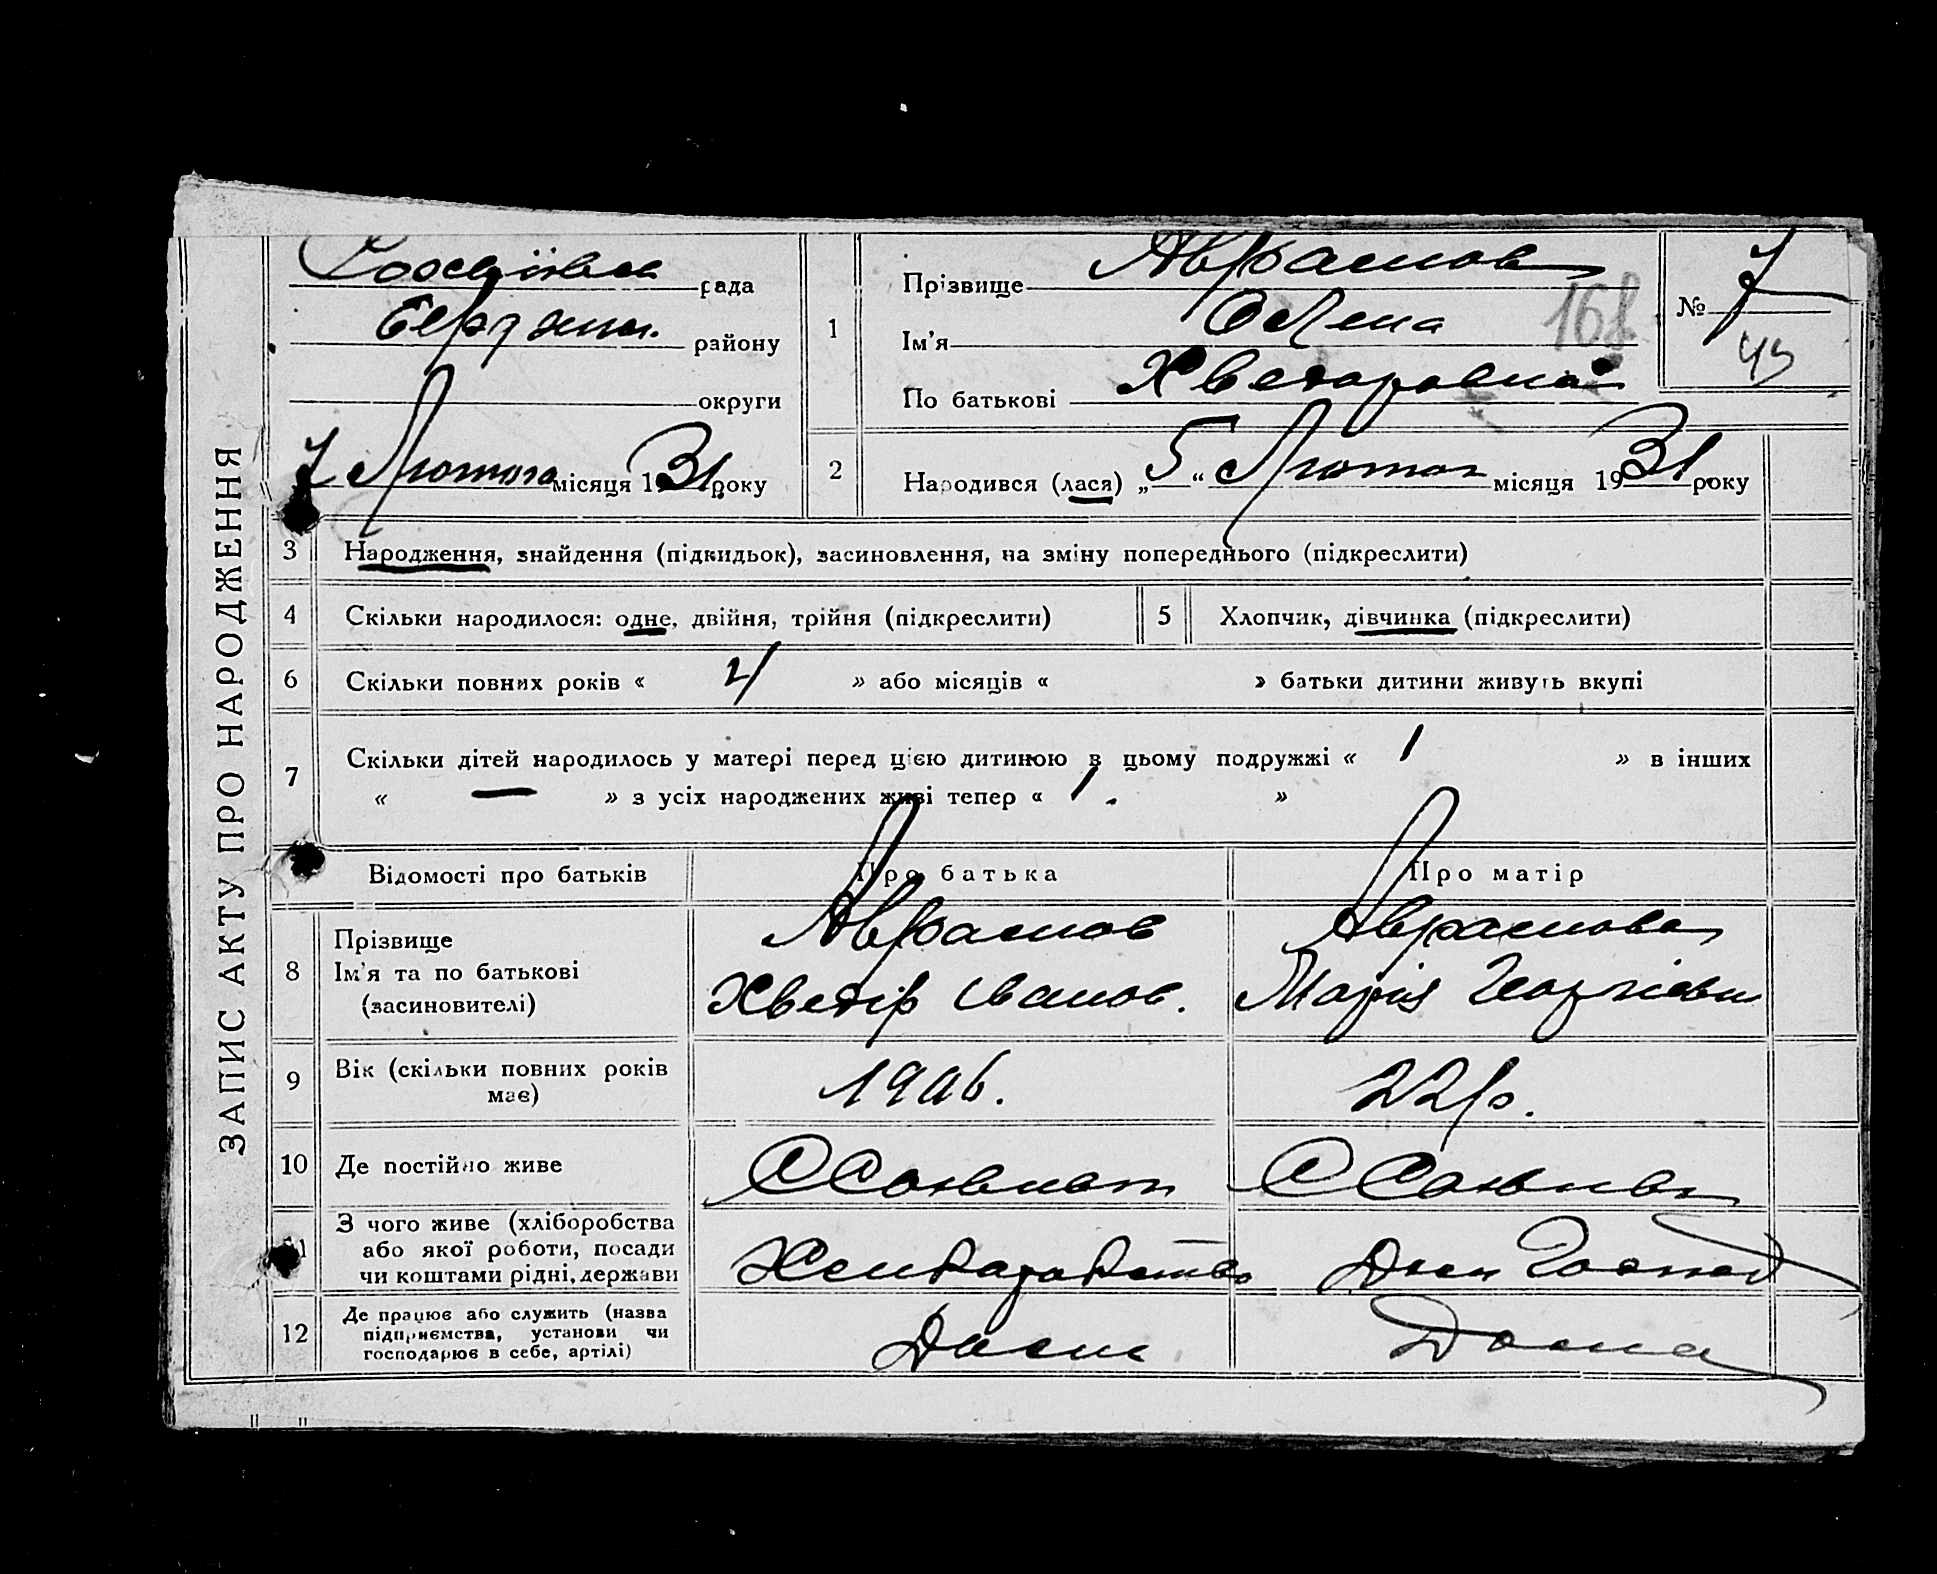 ЗАПИС АКТУ ПРО НАРОДЖЕННЯ
рада
району
округи
7 Лютого місяця 1931 року
1
Прізвище Аврамов
Ім'я Олена
По батькові Хведоровна
168
№ 7
43
2
Народився (лася) „5“ Лютого місяця 1931 року
3 Народження, знайдення (підкидьок), засиновлення, на зміну попереднього (підкреслити)
4 Скільки народилося: одне, двійня, трійня (підкреслити)
5 Хлопчик, дівчинка (підкреслити)
6 Скільки повних років « 4 » або місяців « » батьки дитини живуть вкупі
7 Скільки дітей народилось у матері перед цією дитиною в цьому подружжі « 1 » в інших
« — » з усіх народжених живі тепер « 1. »
Відомості про батьків Про батька Про матір
8 Прізвище
Ім'я та по батькові
(засиновителі)
Аврамов
Хведір Іванов.
Аврамова
Марія Георгіевн
9 Вік (скільки повних років має)
1906.
22 р.
10 Де постійно живе
11 З чого живе (хліборобства
або якої роботи, посади
чи коштами рідні, держави
Дом Господ
12 Де працює або служить (назва
підприємства, установи чи
господарює в себе, артілі)
Дома